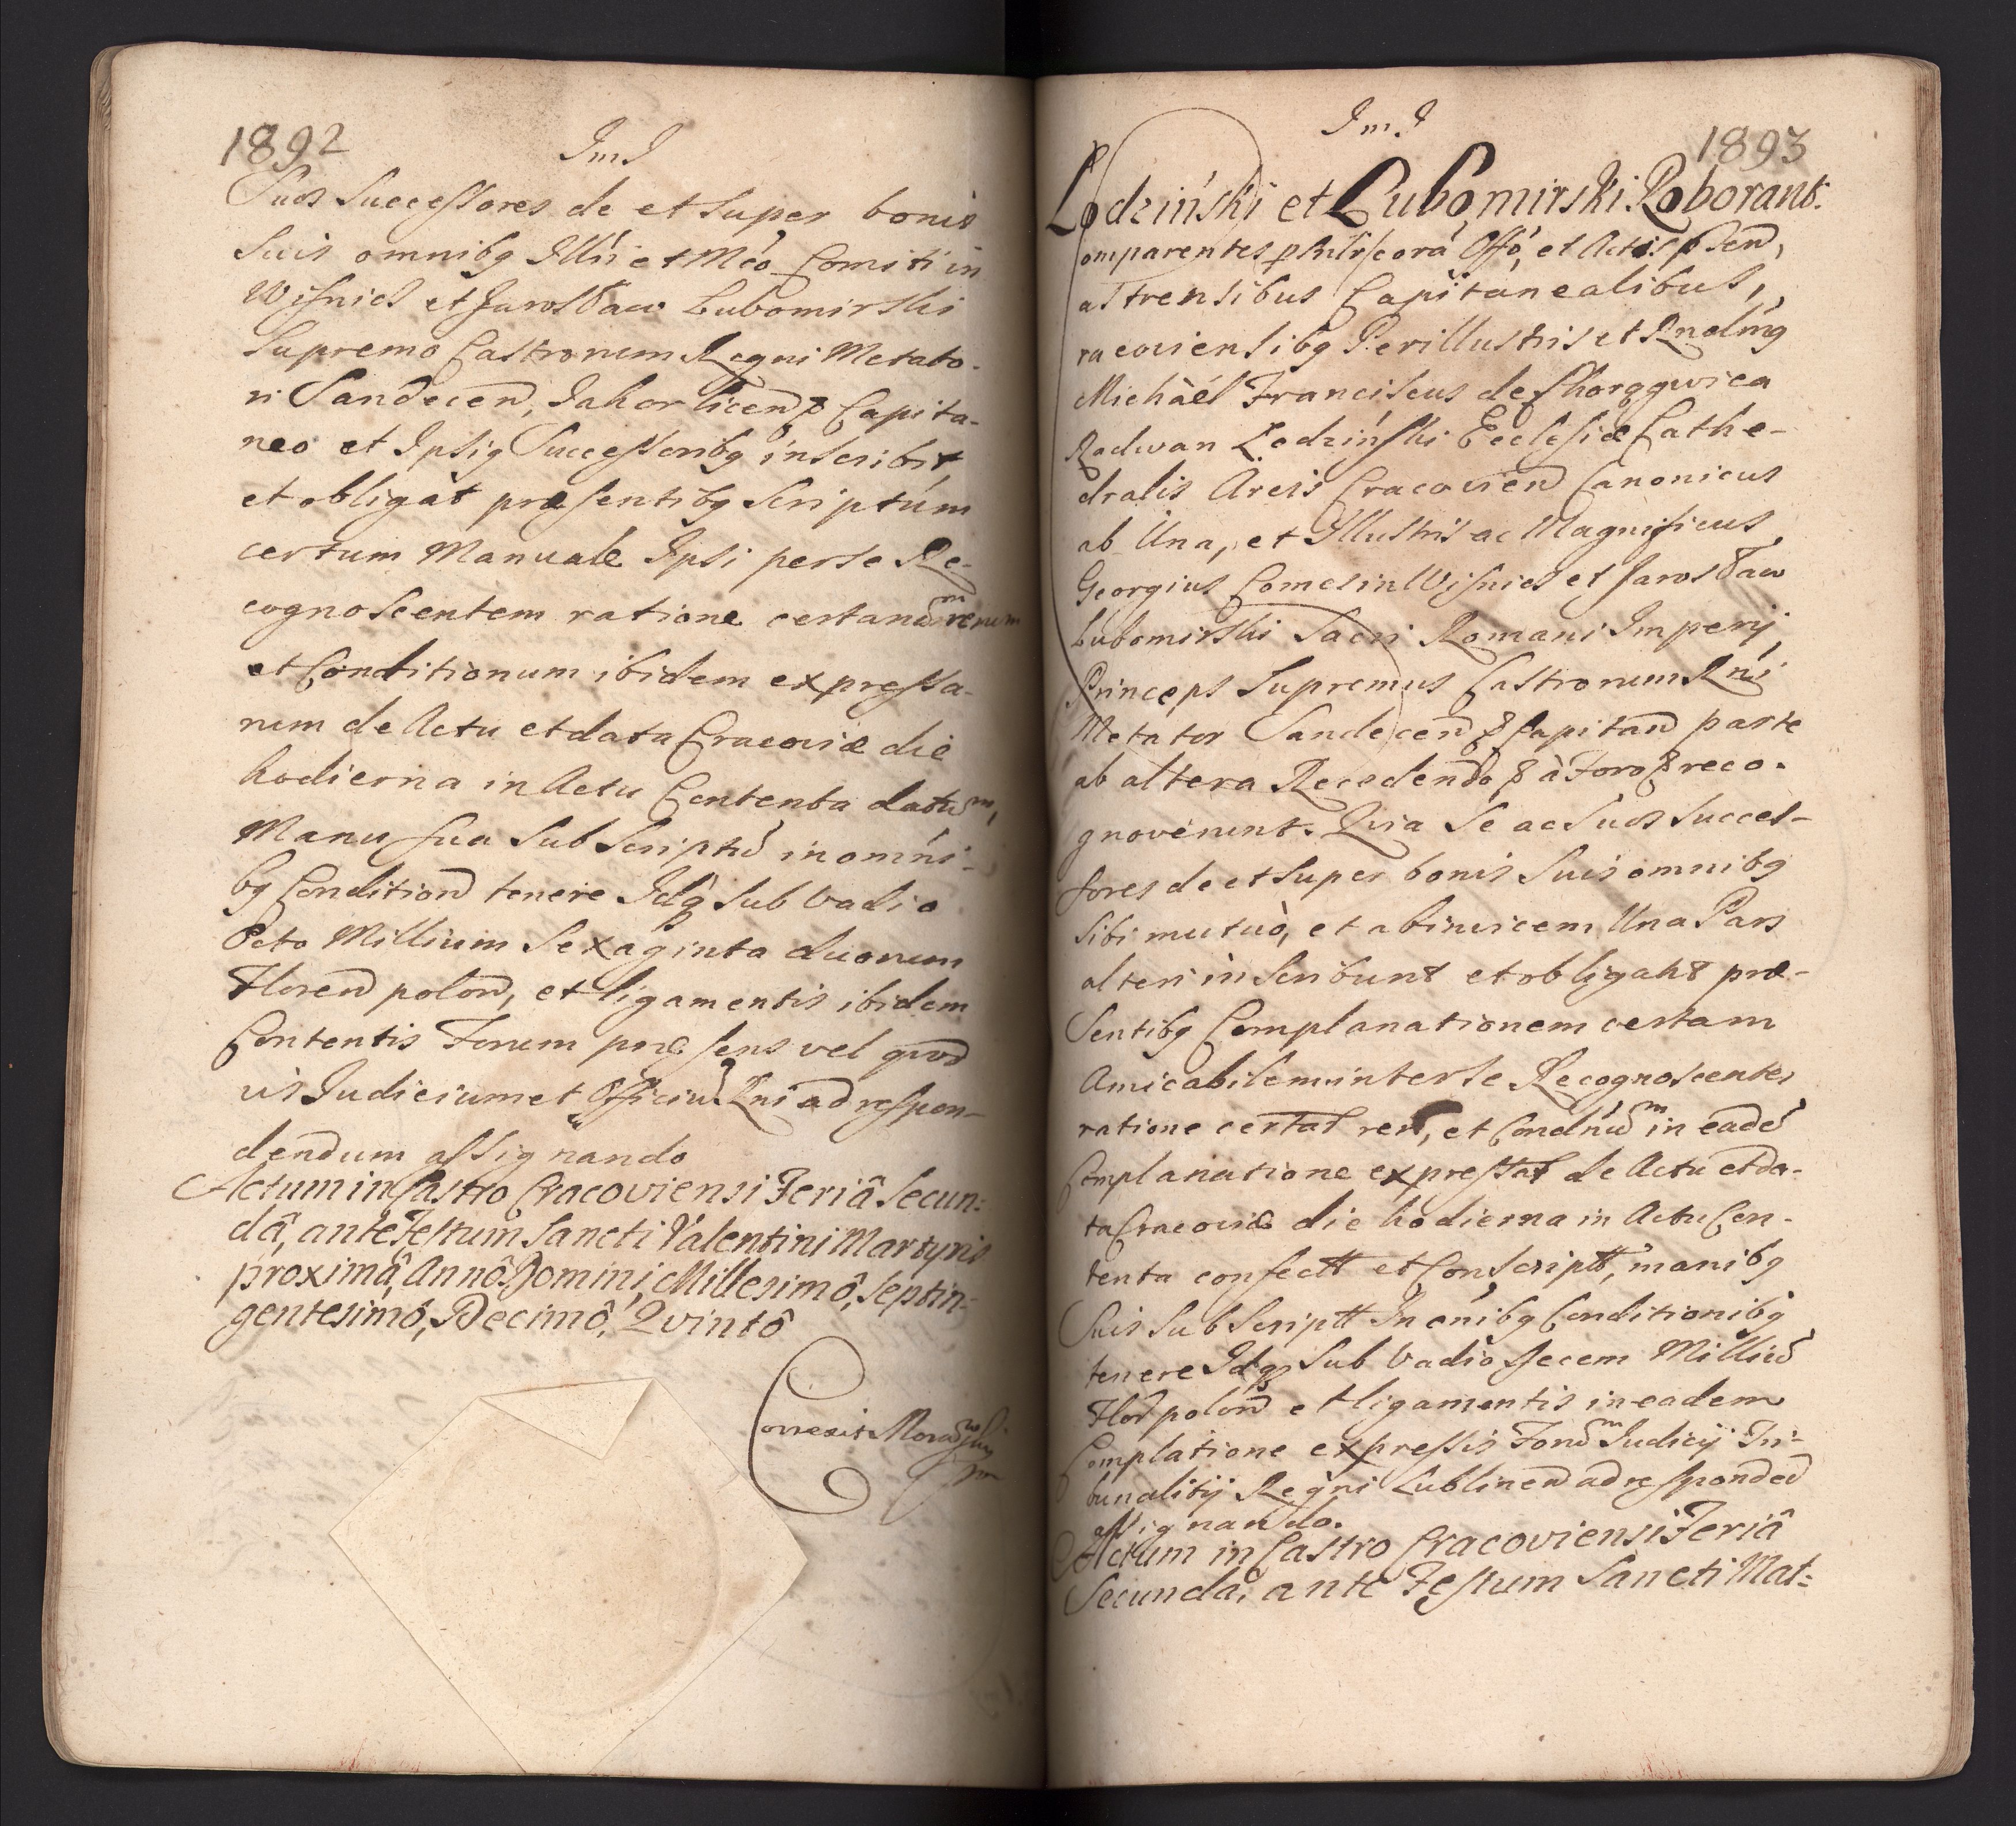 1892
ImI
Suos Successores de et super bonis
suis omnibq Illri et Mco Comiti in
Wisnicz et Jarosław Lubomirski
Supremo Castrorum Regni Metato-
ri Sandecen, Kahorlicen & Capita-
neo et Ipsiq Successoribq inscribit
et obligat præsentibq Scriptúm
certum Manuale Ipsi per se Re-
cognoscentem ratione certarum rerum
et Conditionum ibidem expressa-
rum de Actu et data Cracoviæ die
hodierna in Actu Contenta datum,
Manu sua Subscriptu in omni-
bq Condition tenere Idq sub Vadio
Octo Millium Sexaginta duorum
Floren polon, et ligamentis ibidem
Contentis Forum præsens vel quod
vis Judicium et Officiu Rni ad respon-
dendum assignando
Actum in Castro Cracoviensi Feriâ Secun:
dâ, ante Festum Sancti Valentini Martyris
proximâ, Annô Domini, Millesimô, Septin-
gentesimô, Decimô, Qvintô
Correxit
ImI
1893
Lodzinski et Lubomirski Roborant.
Comparentes Offo, et Actis psen,
Castrensibus Capitanealibus,
Cracoviensibq Perillustris et Rndlmq
Michàél Franciscus de
Radwan Lodzinski Ecclesiæ Cathe-
dralis Arcis Cracovien Canonicus
ab Una, et Illustris ac Magnificus
Georgius Comes in Wisnicz et Jarosław
Lubomirski Sacri Romani Imperij
Princeps Supremus Castrorum Rni
Metator Sandecen & Capitan parte
ab altera Recedendo & à Foro & reco-
gnoverunt. Quia Se ac Suos Succes-
sores de et super bonis Suis omnibq
Sibi mutuò, et abinvicem Una Pars
alteri inscribunt et obligant præ-
Sentibq Complanationem certam
Amicabilem inter se Recognoscentes
ratione certar rer, et Condnum in eade
Complanatione expressar de Actu et da-
ta Cracoviæ die hodierna in Actu Con-
tenta confectt et Conscriptt, manibq
Suis Subscriptt In onibq Conditionibq
tenere Idq sub Vadio Decem Milliu
Flor polon et ligamentis in eadem
Complatione expressis Forum Judicij Tri-
bunalitij Regni Lublinen ad responded
assignando.
Actum in Castro Cracoviensi Feriâ
Secundâ, ante Festum Sancti Mat: